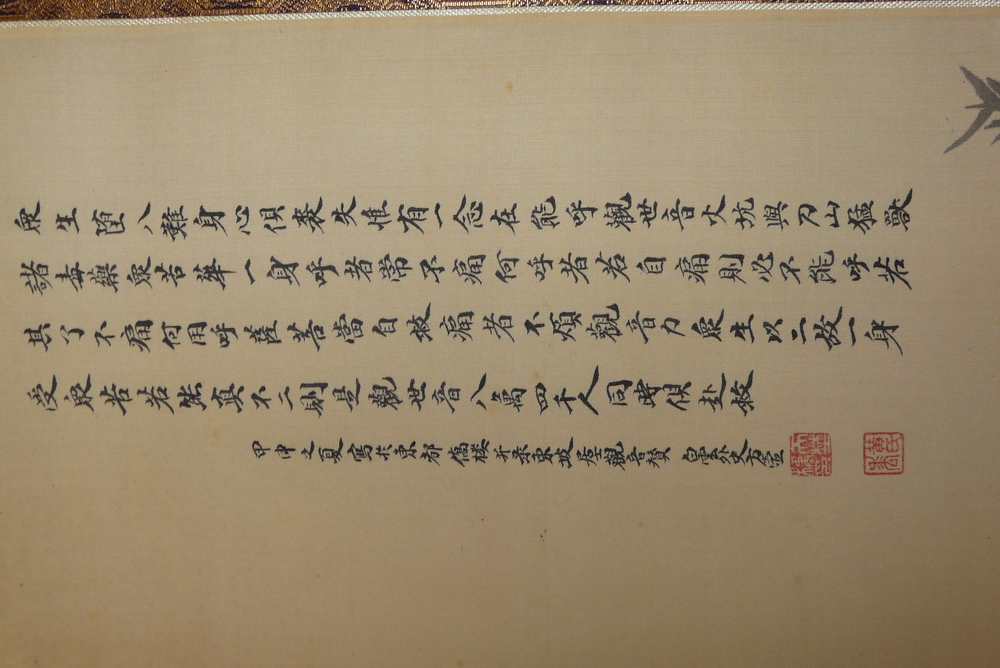 衆生堕八難身心俱喪失惟有一念在能呼觀世音火坑與刀山猛獸
諸毒藥衆苦萃一身呼者常不痛何呼者若自痛則必不能呼若
其了不痛何用呼薩菩當自救痛者不煩觀音力衆生以二故一身
受衆苦若能真不二則是觀世音八萬四千人同時俱赴救
甲申之夏寫於東都僑楼并录東坡居士觀音賛 白雲外史方壺
黄氏